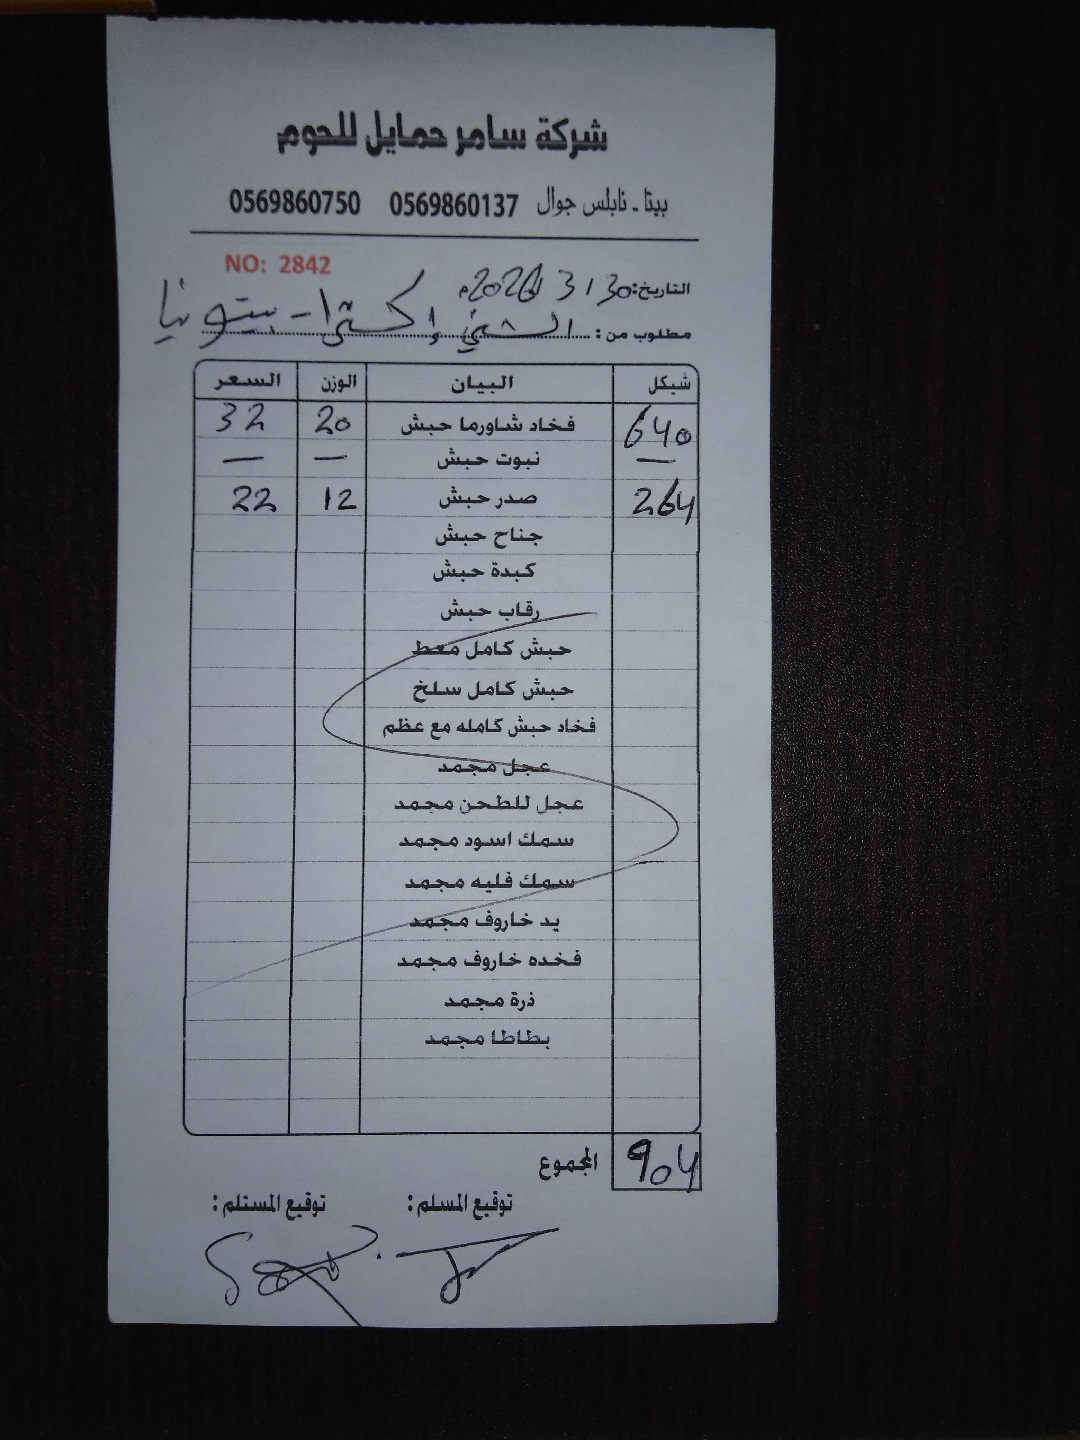 شركة سامر حمايل للحوم
بيتا - نابلس جوال 0569860137 0569860750
NO: 2842
التاريخ: 30 / 3 / 2026م
مطلوب من : الشني إكسترا - بيتونيا
شيكل البيان الوزن السعر
640 فخاد شاورما حبش 20 32
— نبوت حبش — —
264 صدر حبش 12 22
جناح حبش
كبدة حبش
رقاب حبش
حبش كامل معط
حبش كامل سلخ
فخاد حبش كامله مع عظم
عجل مجمد
عجل للطحن مجمد
سمك اسود مجمد
سمك فليه مجمد
يد خاروف مجمد
فخده خاروف مجمد
ذرة مجمد
بطاطا مجمد
904 المجموع
توقيع المسلم : توقيع المستلم :